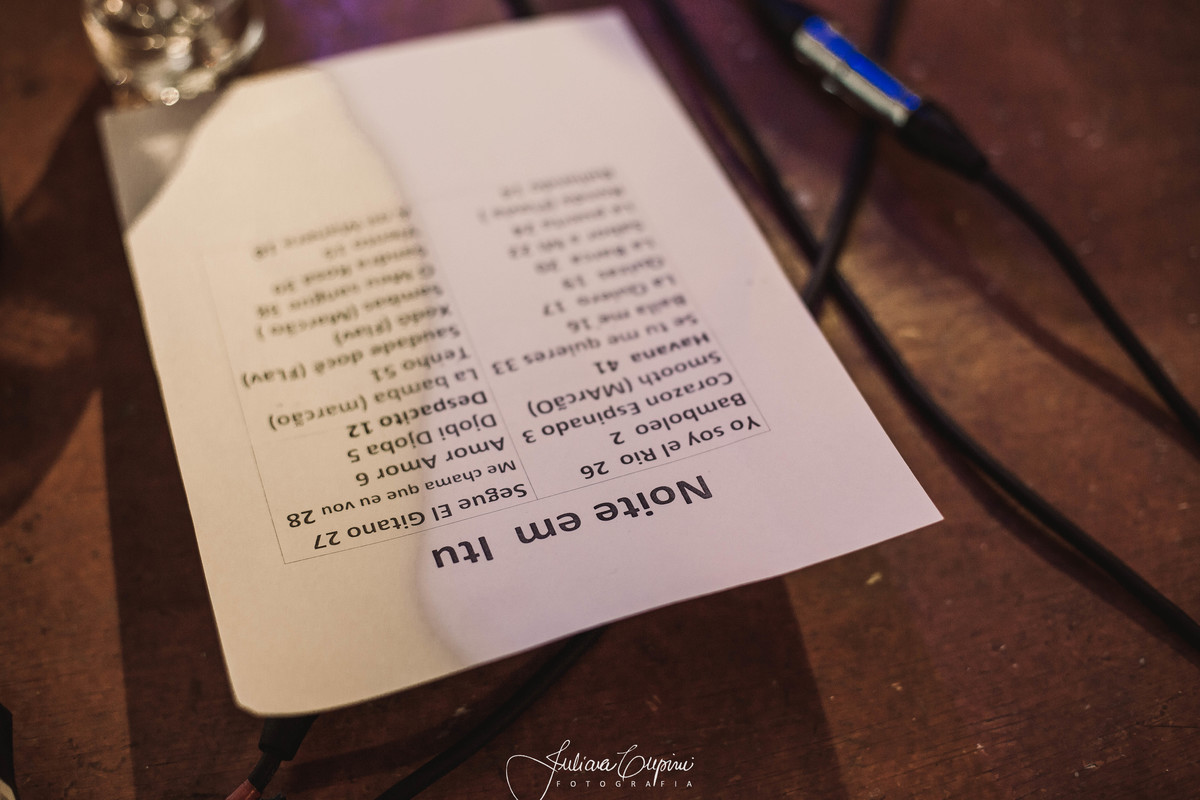 Noite em Itu
Yo soy el Rio 26
Bamboleo 2
Corazon Espinado 3
Smooth (MArcãO)
Havana 41
Se tu me quieres 33
Baila me 16
La Quiero 17
Quizas 19
La Barca 20
Sabor a Mi 22
Segue El Gitano 27
Me chama que eu vou 28
Amor Amor 6
Djobi Djoba 5
Despacito 12
La bamba (marcão)
Tenho 51
Saudade docê (Flav)
Xodó (Flav)
Sambas (Marcão)
O Meu sangue
Sandra Rosa
Juliana Crepini
FOTOGRAFIA